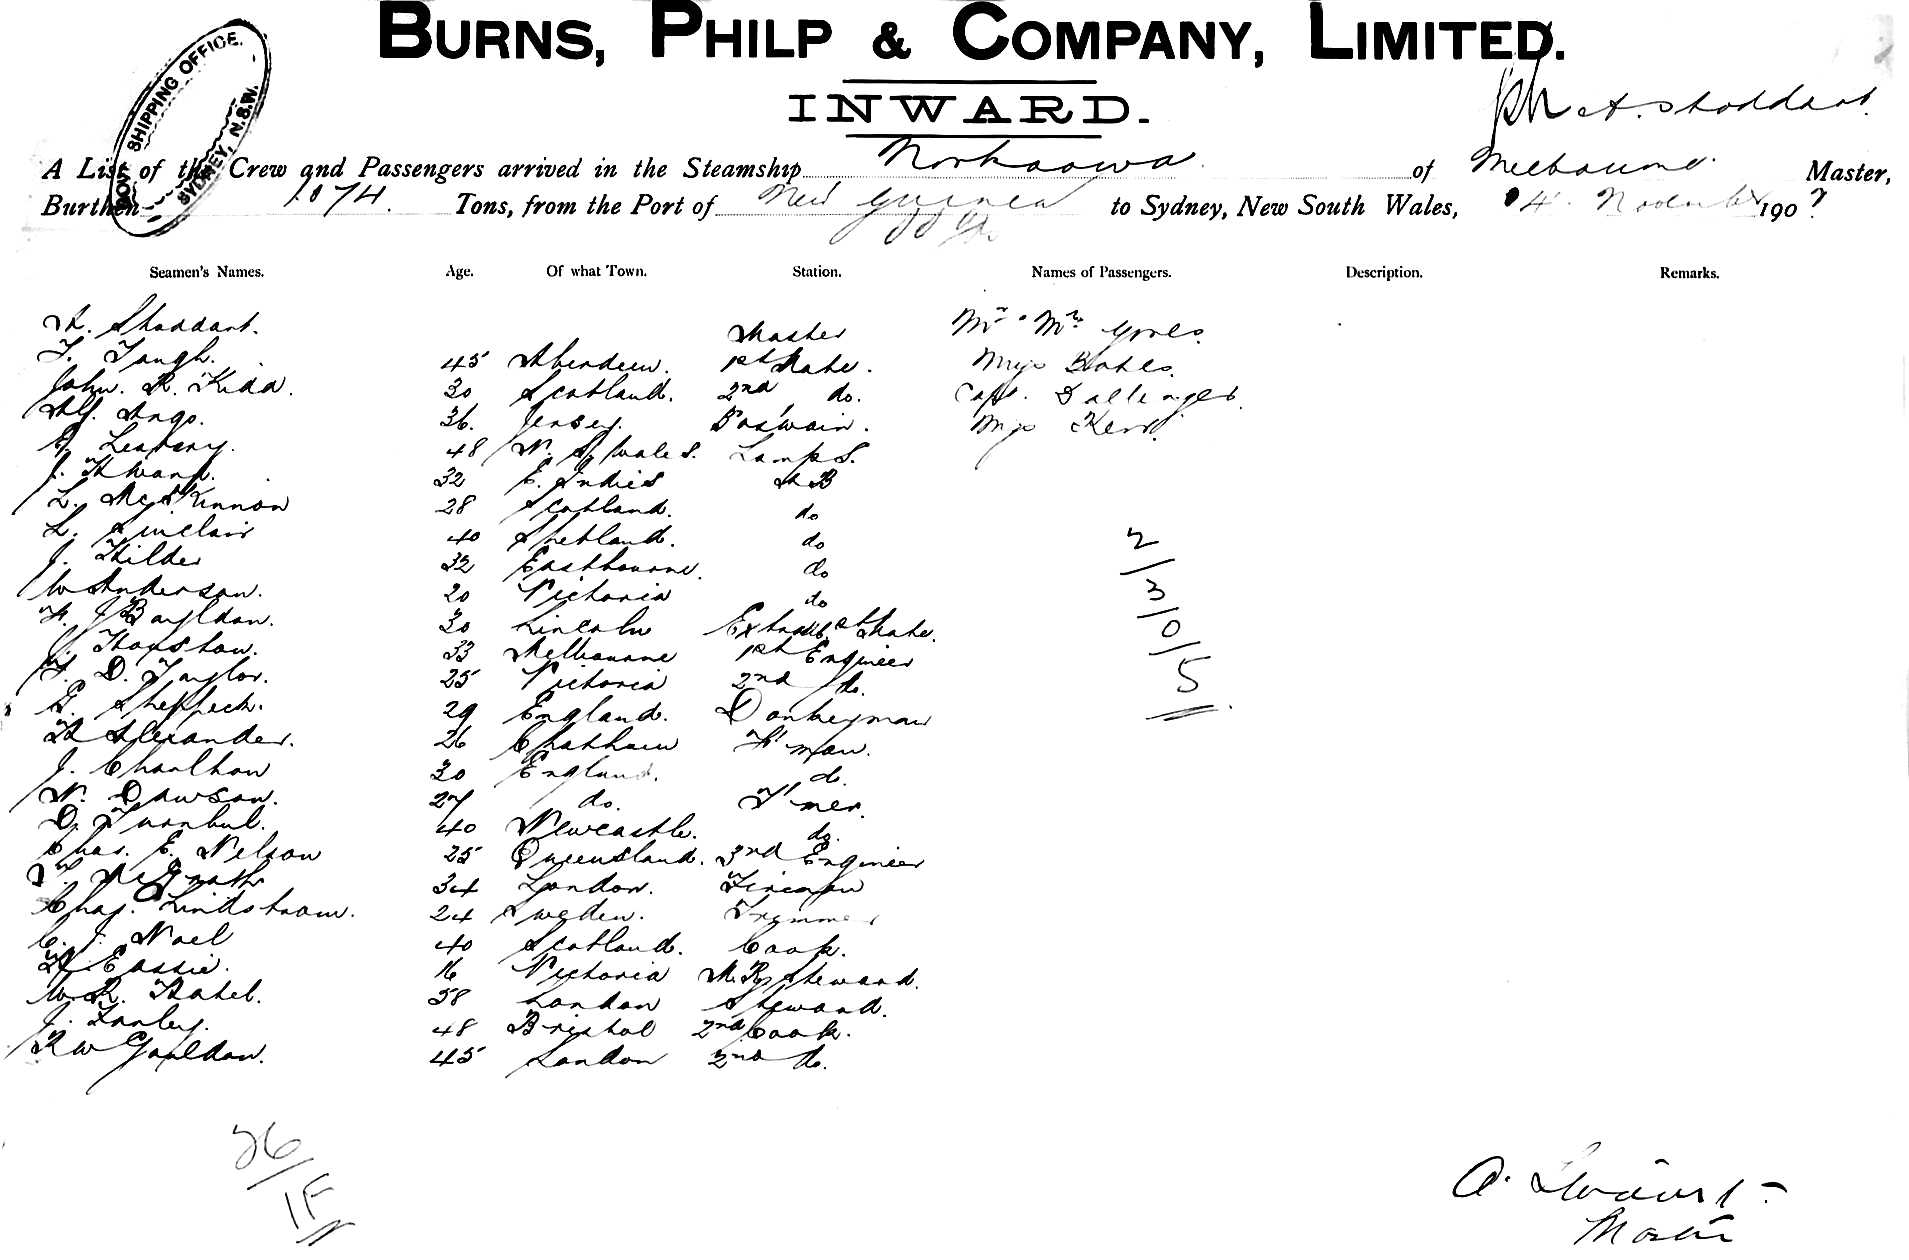 BURNS, PHILP & COMPANY, LIMITED.
INWARD.
GOVT SHIPPING OFFICE.
SYDNEY, N.S.W.
A. Stoddart.
A List of the Crew and Passengers arrived in the Steamship of Melbourne Master,
Burthen 1074. Tons, from the Port of New Guinea to Sydney, New South Wales, 4. November 1907
Seamen's Names. Age. Of what Town. Station. Names of Passengers. Description. Remarks.
A. Stoddart. Master Mr & Mrs
T. Tough. 45 Aberdeen. 1st Mate. Miss Bates.
John. R. Kidd. 30 Scotland. 2nd do. Capt.
36. Jersey. Bos'wain. Miss Kerr.
48 N. S. Wales. Lamps.
J. 32 E. Indies A B
L. McKinnon 28 Scotland. do
L. Sinclair 40 Shetland. do
J. Hilder 32 Eastbourne. do
W Anderson. 20 Victoria do
F. J Bayldon. 30 Lincoln Extra 1st Mate.
J. Houston. 33 Melbourne 1st Engineer
F. D. Taylor. 25 Victoria 2nd do.
G. 29 England. Donkeyman
H Alexander. 26 Chatham F'man.
J. Charlton 30 England. do.
N. Dawson. 27 do. T'mer.
D. Turnbul. 40 Newcastle. do.
Chas. E. Nelson 25 Queensland. 3rd Engineer
McGrath 34 London. Fireman
Chas. Lindstroom. 24 Sweden. Trimmer
C. J. Noel 40 Scotland. Cook.
Eassie. 16 Victoria M. R. Steward.
W. R. 58 London Steward.
J. 48 Bristol 2nd Cook.
R W Gouldon. 45 London 2nd do.
2/3/0/5
26/1F
A. Stoddart
Master